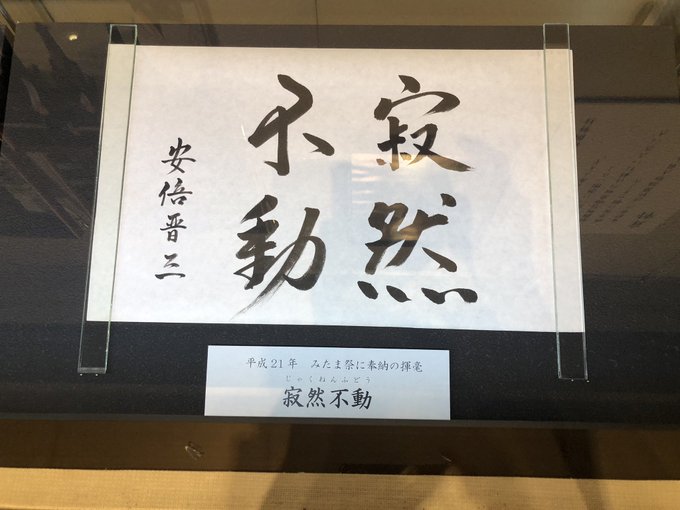 寂然
不動
安倍晋三
平成21年　みたま祭に奉納の揮毫
じゃくねんふどう
寂然不動